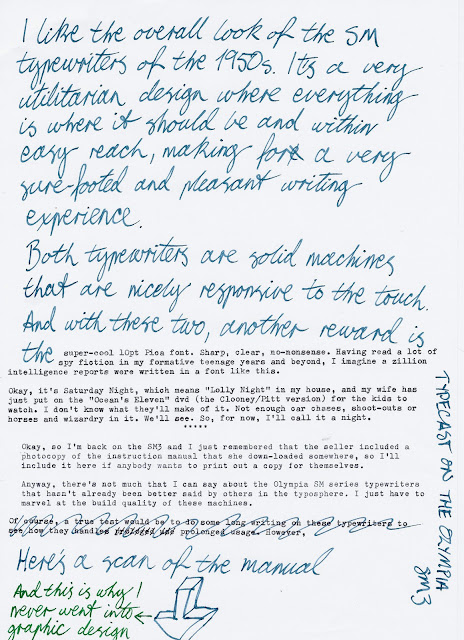 I like the overall look of the SM
typewriters of the 1950s. Its a very
utilitarian design where everything
is where it should be and within
easy reach, making for a very
sure-footed and pleasant writing
experience.
Both typewriters are solid machines
that are nicely responsive to the touch.
And with these two, another reward is
the super-cool 10pt Pica font. Sharp, clear, no-nonsense. Having read a lot of
spy fiction in my formative teenage years and beyond, I imagine a zillion
intelligence reports were written in a font like this.
Okay, it's Saturday Night, which means "Lolly Night" in my house, and my wife has
just put on the "Ocean's Eleven" dvd (the Clooney/Pitt version) for the kids to
watch. I don't know what they'll make of it. Not enough car chases, shoot-outs or
horses and wizardry in it. We'll see. So, for now, I'll call it a night.
*****
Okay, so I'm back on the SM3 and I just remembered that the seller included a
photocopy of the instruction manual that she down-loaded somewhere, so I'll
include it here if anybody wants to print out a copy for themselves.
Anyway, there's not much that I can say about the Olympia SM series typewriters
that hasn't already been better said by others in the typosphere. I just have to
marvel at the build quality of these machines.
Of course, a true test would be to do some long writing on these typewriters to
see how they handles prologed use prolonged usage. However,
Here's a scan of the manual
And this is why I
never went into
graphic design
TYPECAST ON THE OLYMPIA
SM3